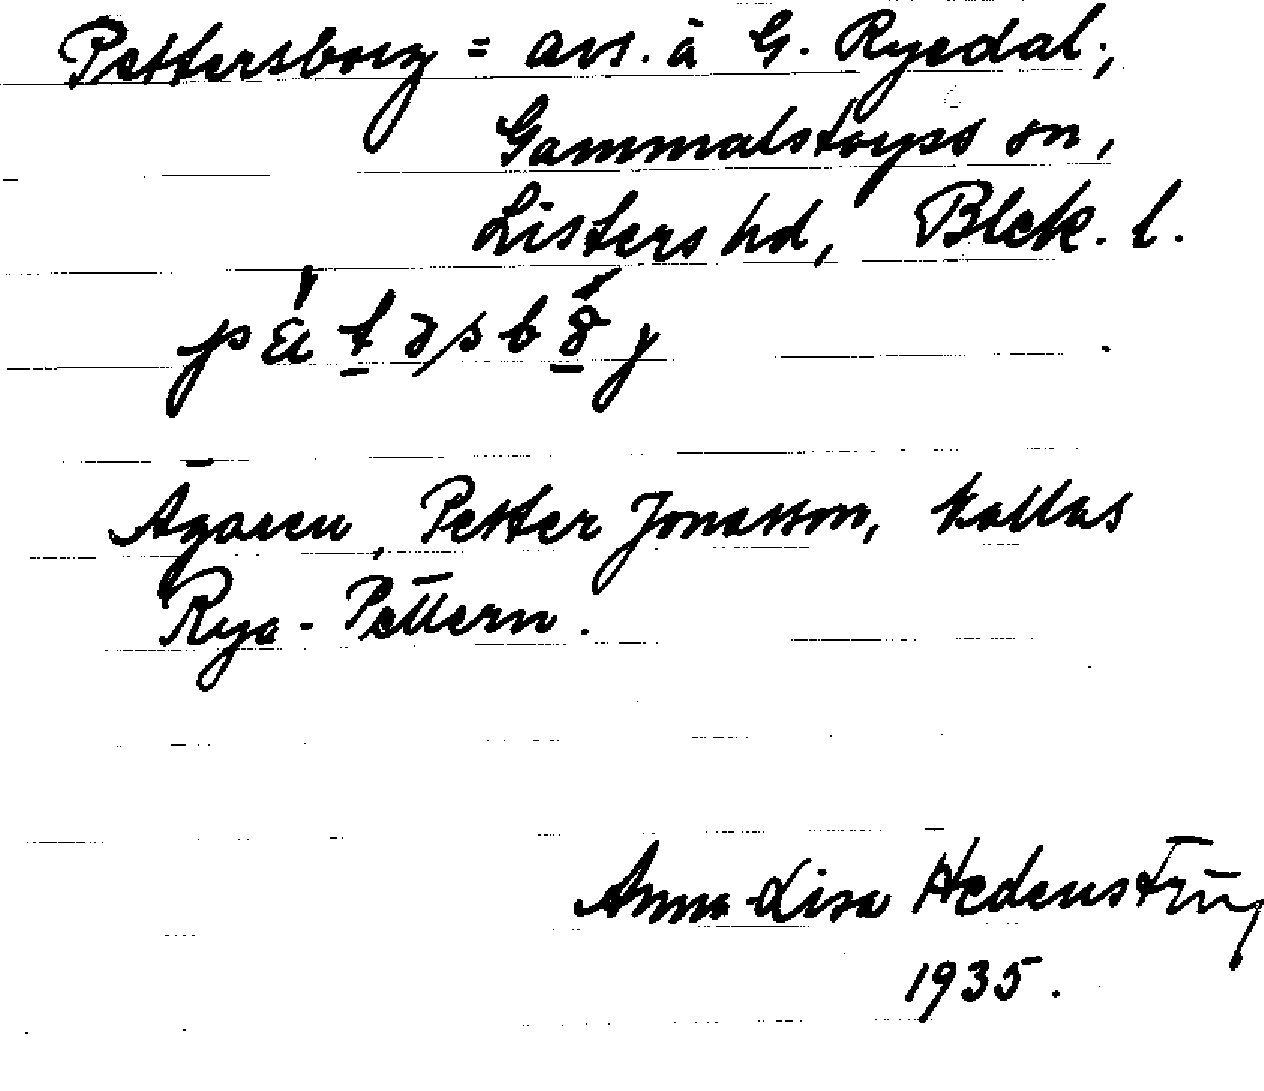 Pettersborg = avs. å G. Ryedal,
Gammalstorps sn,
Listers hd, Blek. l.
Ägaren, Petter Jonasson, kallas
Rya-Pettern.
Anna-Lisa Hedenstring
1935.